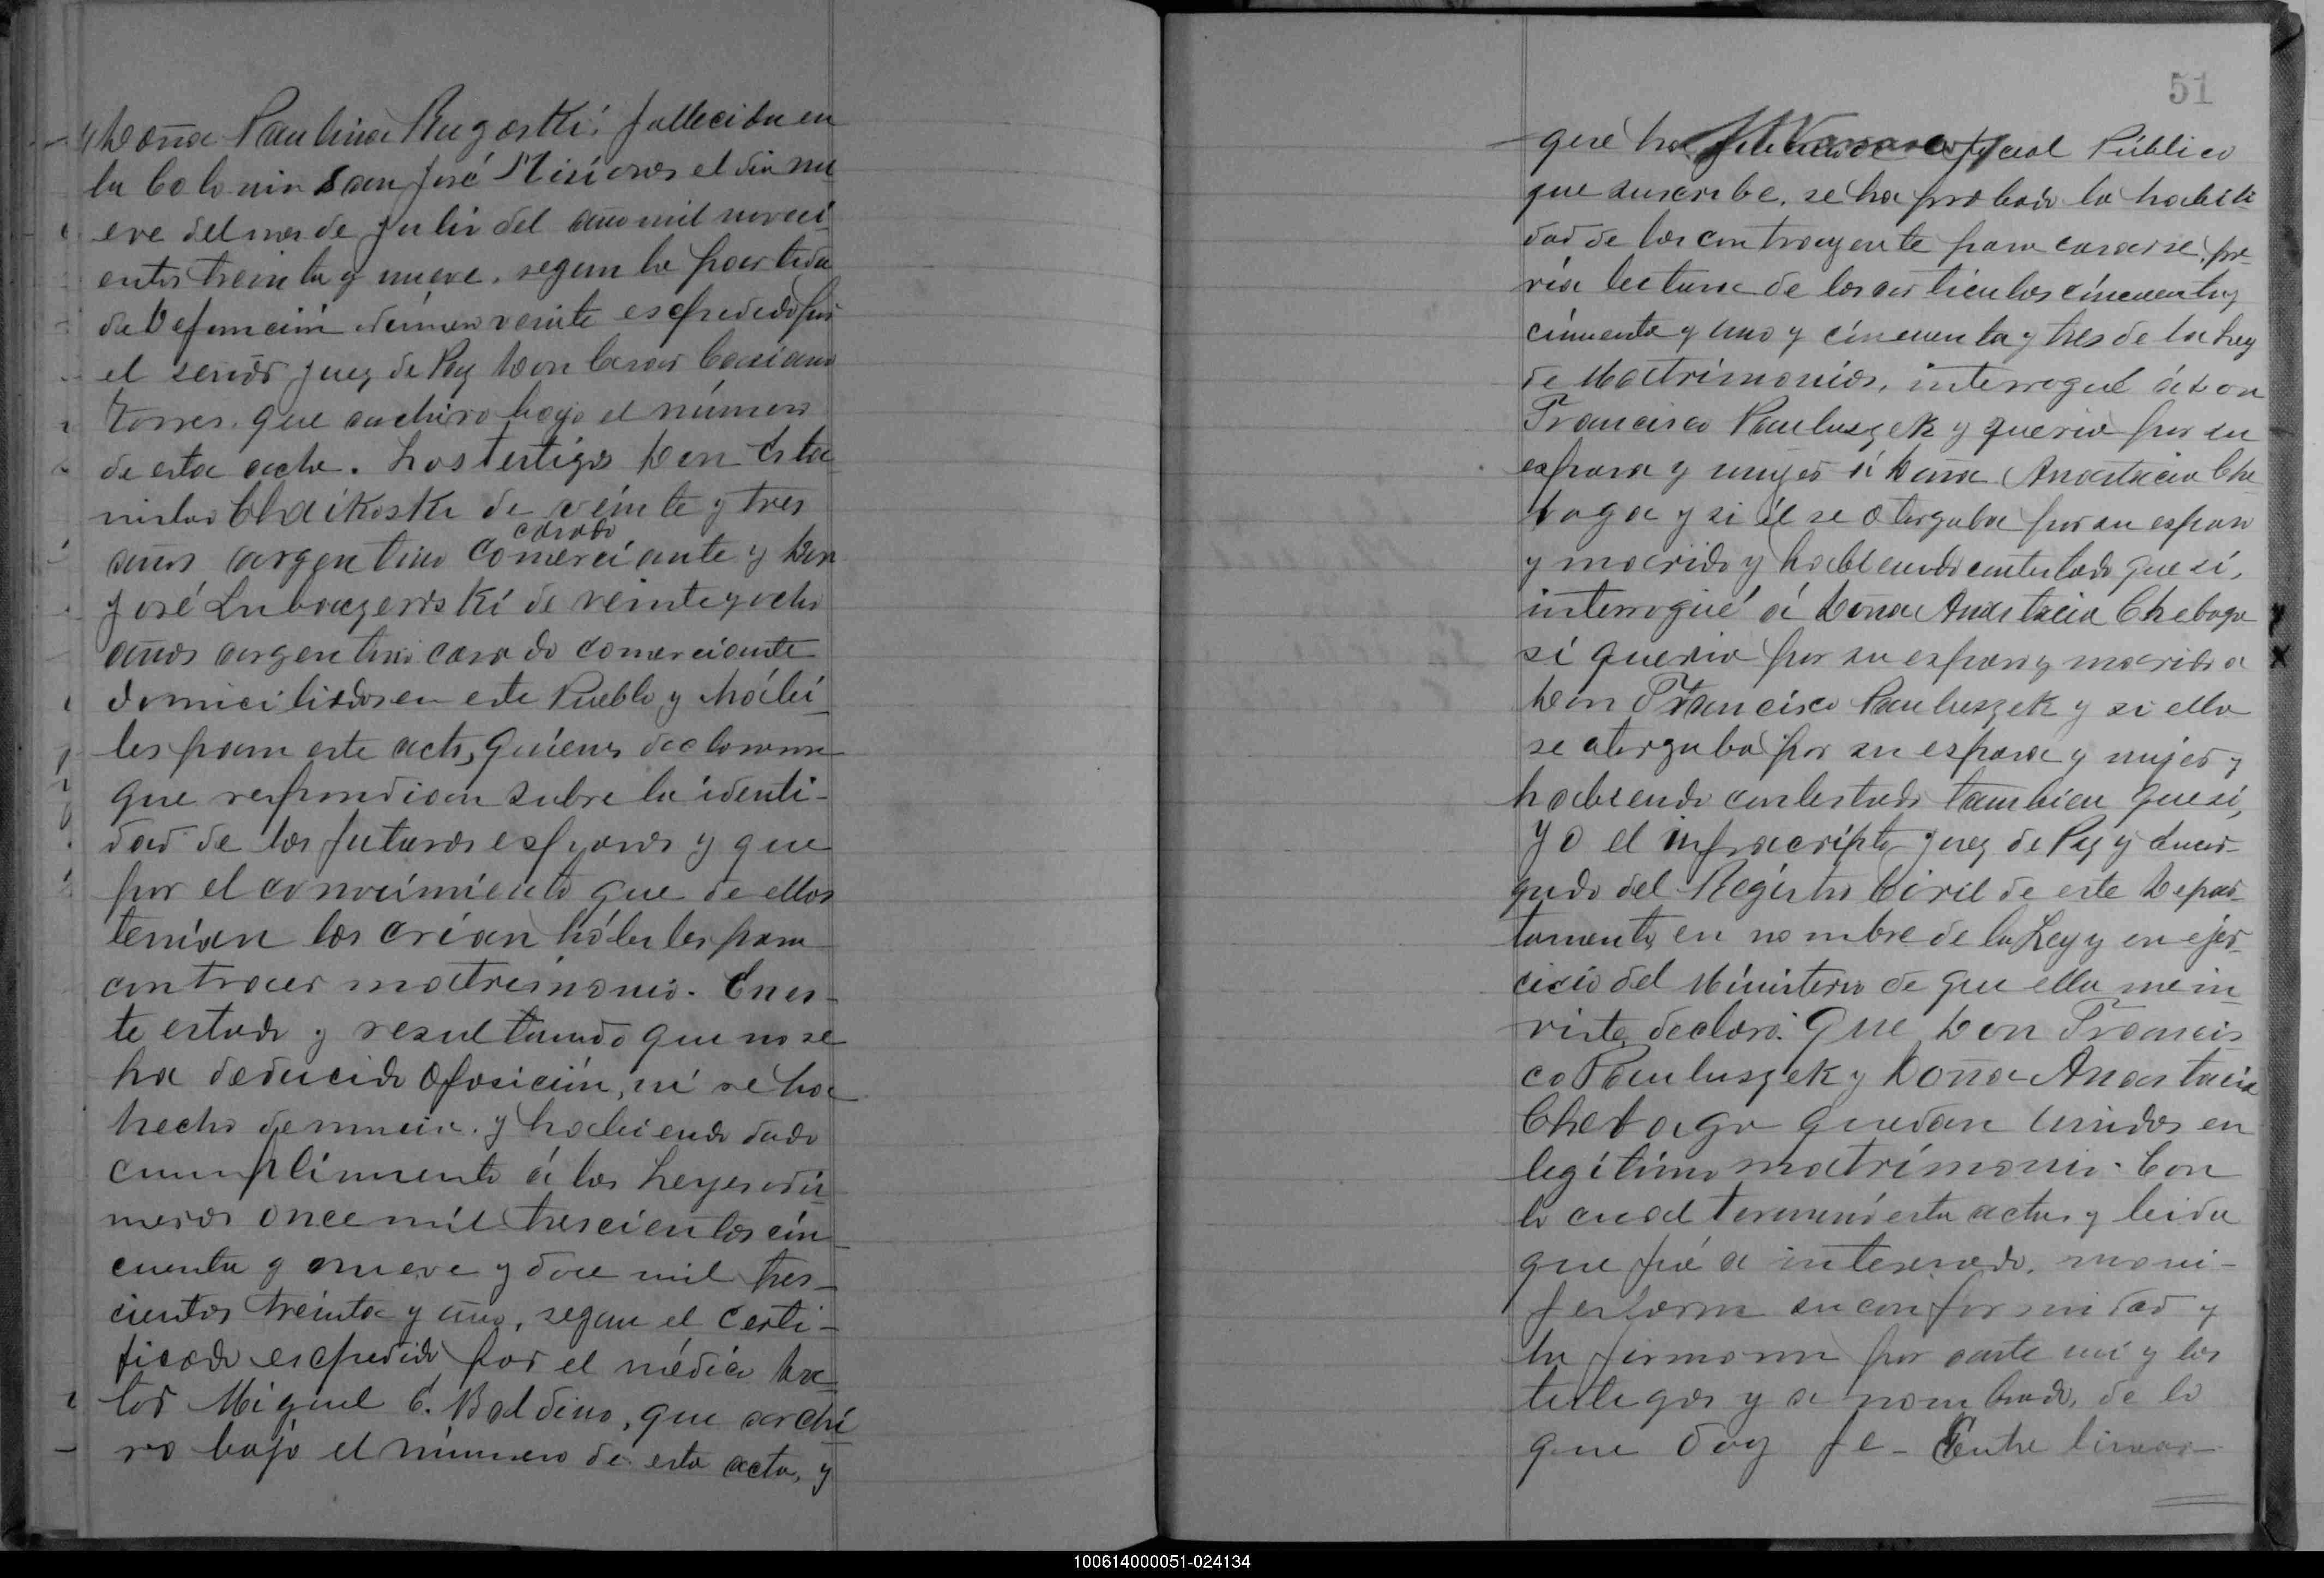 y Doña Paulina Rugoski, fallecida en
la Colonia San José Misiones el dia nu
eve del mes de Julio del año mil noveci
entos treinta y nueve, segun la partida
de Defunción número veinte espedida por
el señor Juez de Paz Don Casiano
Torres que archivo bajo el número
de esta acta. Los testigos Don Esta
nislao Chaikoski de veinte y tres
casado
años argentino comerciante y Don
José Lubaczevski de veinte y ocho
años argentino casado comerciante
domiciliados en este Pueblo y hábi
les para este acto, quienes declararon
que respondian sobre la identi-
dad de los futuros esposos y que
por el conocimiento que de ellos
tenian los crian hábiles para
contraer matrimonio. En es-
te estado y resultando que no se
ha deducido oposición, ni se ha
hecho denuncia. y habiendo dado
cumplimiento á las Leyes nú
meros once mil trescientos cin
cuenta y nueve y doce mil tres-
cientos treinta y uno, segun el certi-
ficado espedido por el médico Do
tor Miguel C. Baldino, que archi
vo bajo el número de esta acta, y
51
que ha Público
que suscribe, se ha probado la habili
dad de los contrayente para casarse, pre
via lectura de los articulos cincuenta y
cinuenta y uno y cincuenta y tres de la Ley
de Matrimonios, interrogué á Don
Francisco Pauluszek y queria por su
esposa y mujer á Doña Anastacia Che
boga y si él se otorgaba por su esposo
y marido y habiendo contestado que sí,
interrogué á Doña Anastacia Cheboga
sí queria por su esposo y marido a
Don Francisco Pauluszek y si ella
se otorgaba por su esposa y mujer y
habiendo contestado tambien que sí,
Yo el infracripto Juez de Paz y Encar-
gado del Registro Civil de este Depar-
tamento, en nombre de la Ley y en ejer-
cicio del Ministerio de que ella me in
viste, declaro: Que Don Francis
co Pauluszek y Doña Anastacia
Cheboga quedan unidos en
legítimo matrimonio. Con
lo cual terminó esta acta y leida
que fué a interesado, mani-
festaron su conformidad y
la firmaron por ante mi y los
testigos y a nombrado, de lo
que doy fe - Entre lineas
100614000051-024134